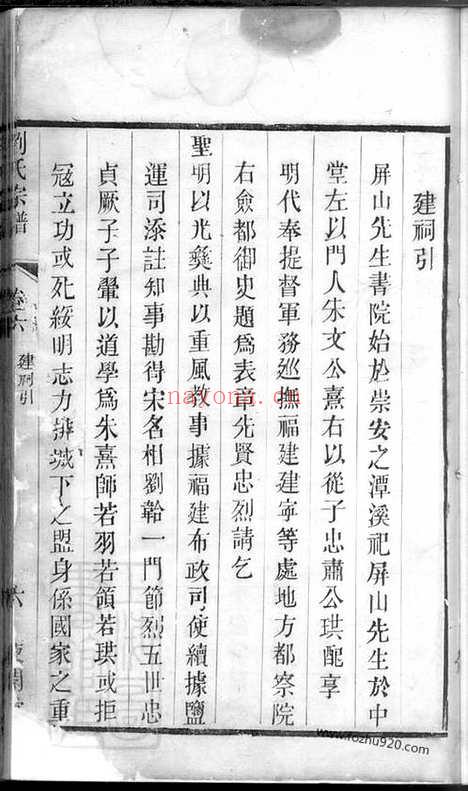 建祠引
屏山先生書院始於崇安之潭溪祀屏山先生於中
堂左以門人朱文公熹右以從子忠肅公珙配享
明代奉提督軍務巡撫福建建寧等處地方都察院
右僉都御史題為表章先賢忠烈請乞
聖明以光彝典以重風教事據福建布政司使續據鹽
運司添註知事勘得宋名相劉韐一門節烈五世忠
貞厥子子翬以道學為朱熹師若羽若領若珙或拒
冠立功或死綏明志力排城下之盟身係國家之重
劉氏宗譜
卷六
建祠引
六
nayona.cn
www.fozhu920.com